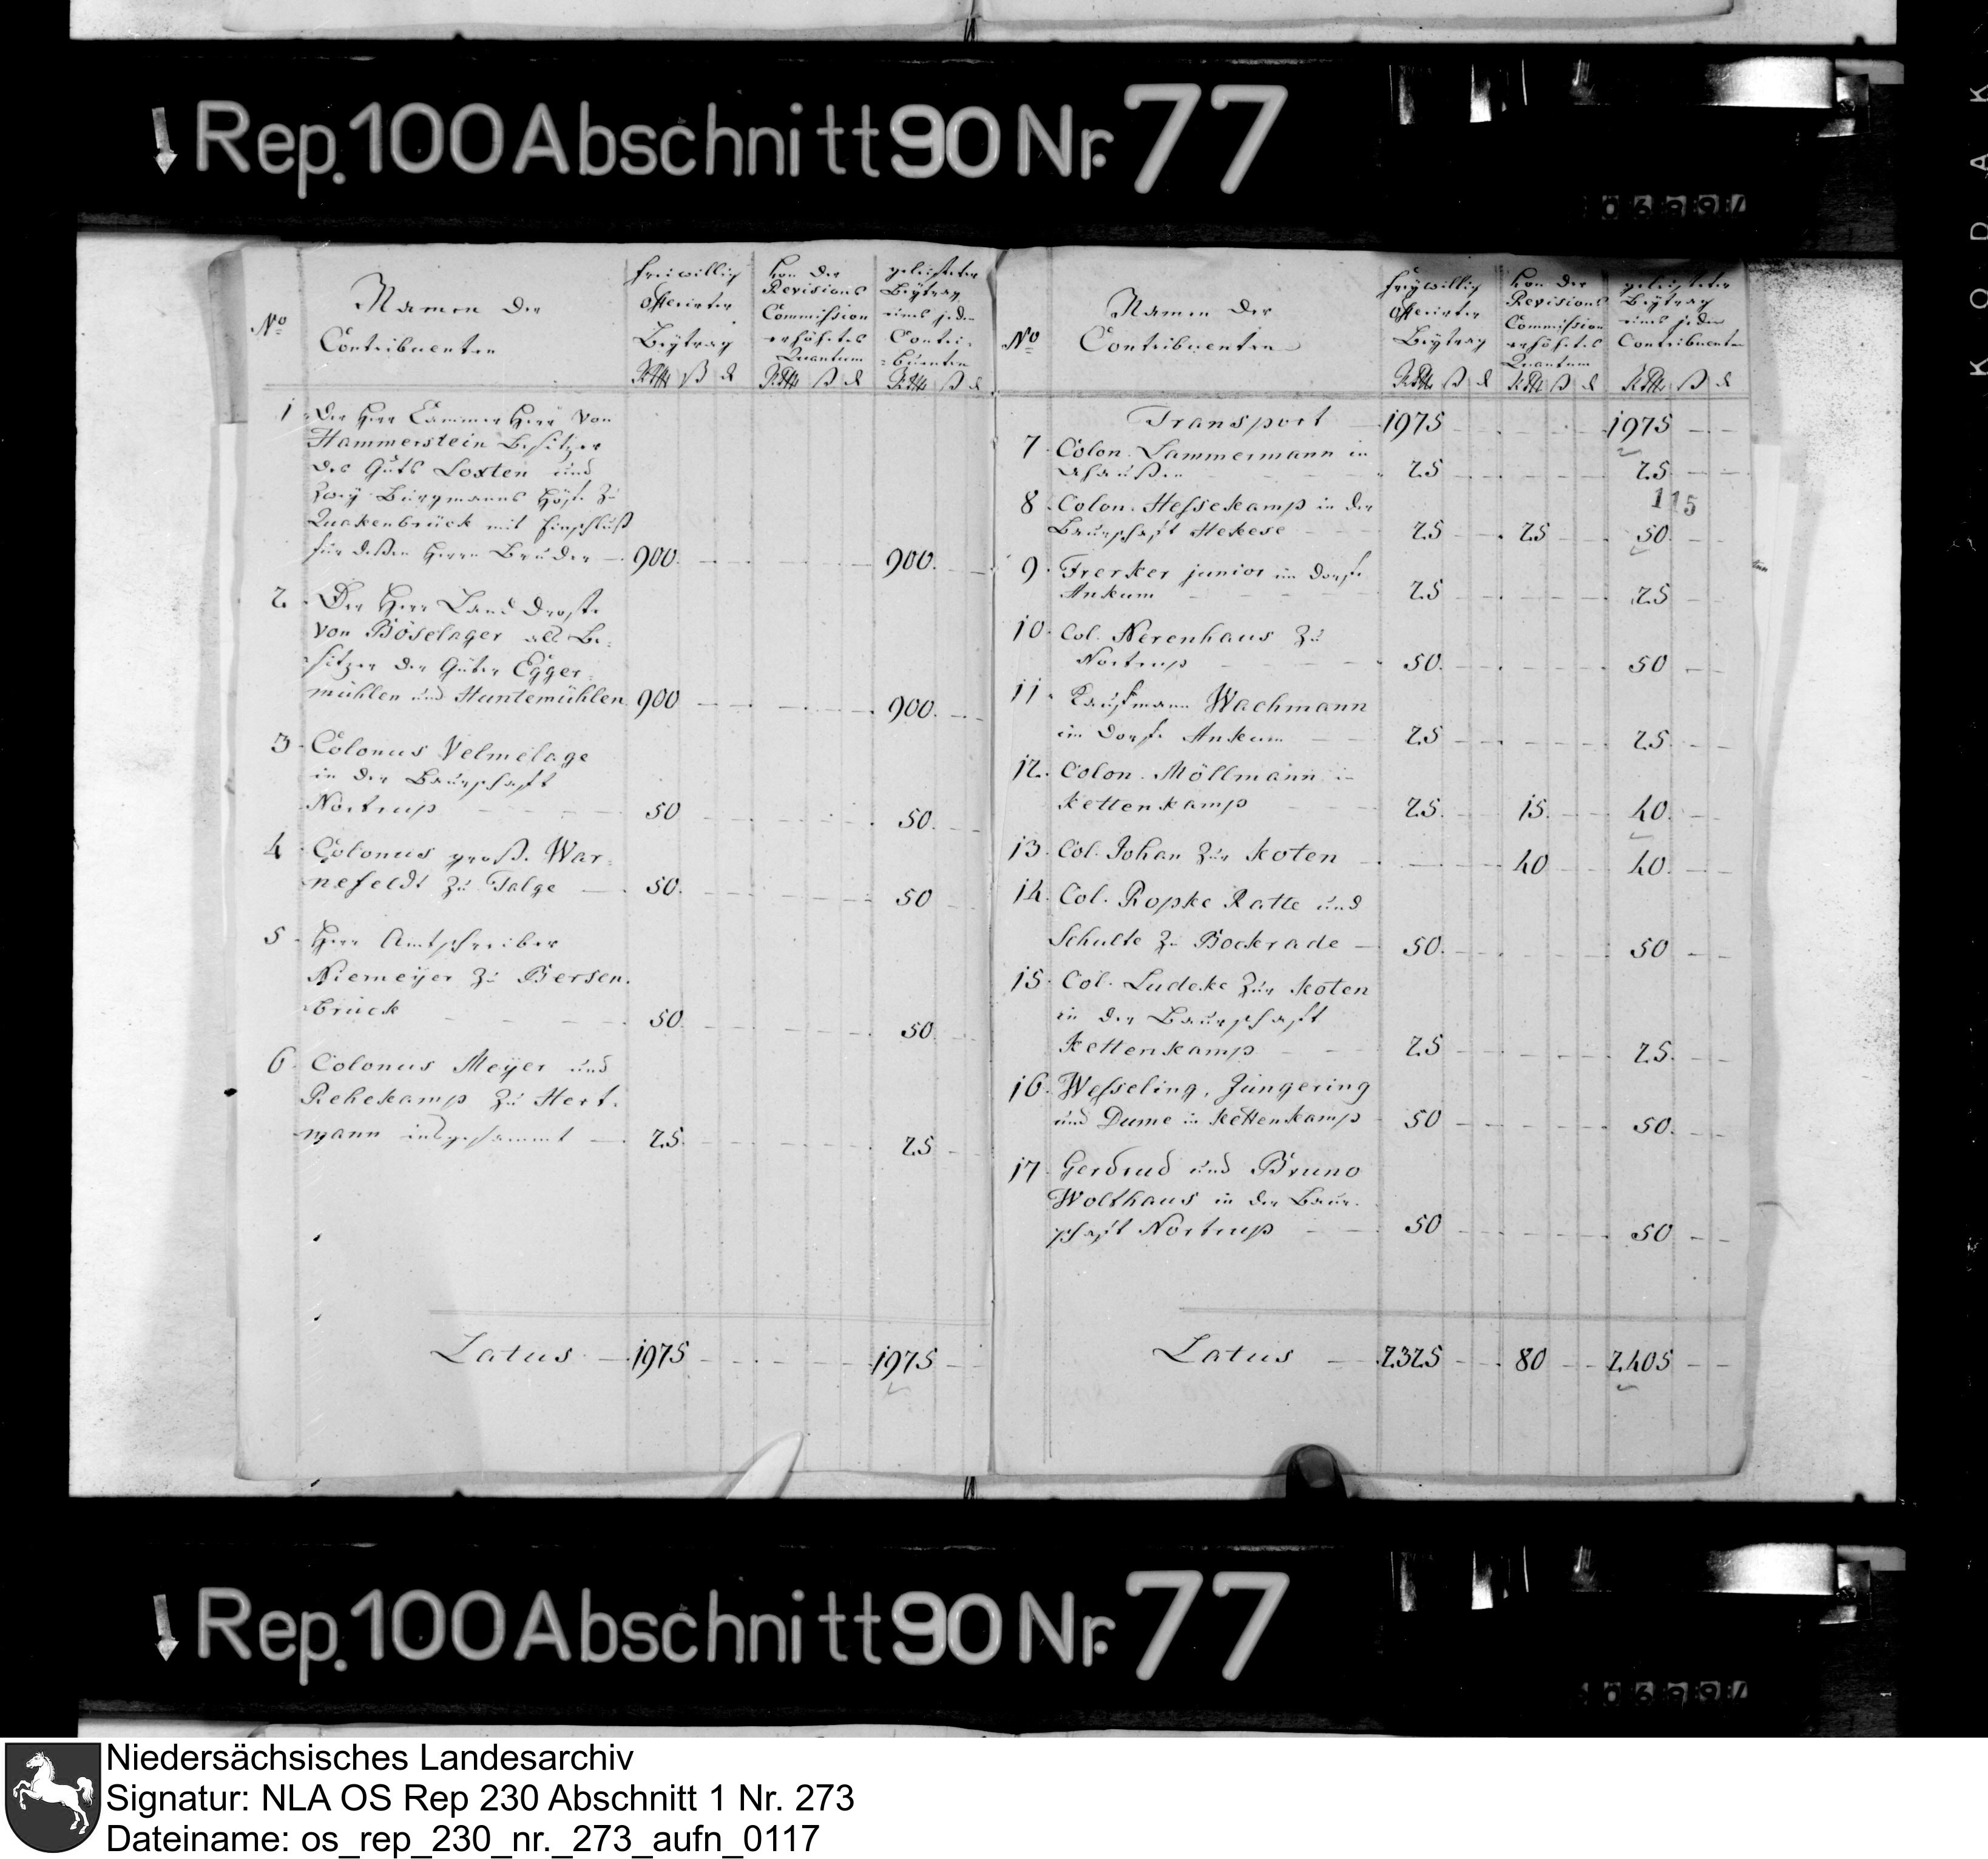 Rep. 100 Abschnitt 90 Nr. 77
KODAK
No
Namen der
Contribuenten
freiwillig
offerirter
Beÿtrag
von der
Revisions
Commission
erhöhetes
Quantum
geleisteter
Beÿtrag
eines jeden
Contri-
buenten
Rthlr ß d Rthlr ß d Rthlr ß d
1 Der Herr Cammer Herr von
Hammerstein Besitzer
des Guts Loxten und
zweÿ Burgmanns Höfe zu
Quakenbrück mit Einschluß
für deßen Herrn Bruder 900. 900.
2. Der Herr Land Droste
von Böselager als Be-
sitzer der Güter Egger-
mühlen und Huntemühlen 900 900.
3. Colonus Velmelage
in der Baurschaft
Nortrup 50 50.
4 Colonus große War-
nefeldt zu Talge 50. 50
5. Herr Amtschreiber
Niemeÿer zu Bersen-
brück 50. 50.
6. Colonus Meÿer und
Rehekamp zu Hert-
mann insgesammt 25. 25
Latus 1975 1975
No
Namen der
Contribuenten
freÿwillig
offerirter
Beÿtrag
von der
Revisions
Commission
erhöhetes
Quantum
geleisteter
Beÿtrag
eines jeden
Contribuenten
Rthlr ß d Rthlr ß d Rthlr ß d
Transport 1975 1975
7. Colon. Lammermann in
Ahausen 25 25
115
8. Colon. Hessekamp in der
Baurschaft Hekese 25 25 50.
9. Frerker junior im Dorfe
Ankum 25 25
10. Col. Nerenhaus zu
Nortrup 50. 50
11. Kaufmann Wachmann
im Dorfe Ankum 25 25.
12. Colon. Möllmann in
Kettenkamp 25. 15. 40.
13. Col. Johan zur Koten 40 40.
14. Col. Ropke Ratte und
Schulte zu Bockrade 50. 50
15. Col. Ludeke zur Koten
in der Baurschaft
Kettenkamp 25 25.
16. Wesseling, Jüngering
und Dume in Kettenkamp 50 50.
17. Gerdrud und Bruno
Wolthaus in der Baur-
schaft Nortrup 50 50
Latus 2325 80 2405
Rep. 100 Abschnitt 90 Nr. 77
Niedersächsisches Landesarchiv
Signatur: NLA OS Rep 230 Abschnitt 1 Nr. 273
Dateiname: os_rep_230_nr._273_aufn_0117